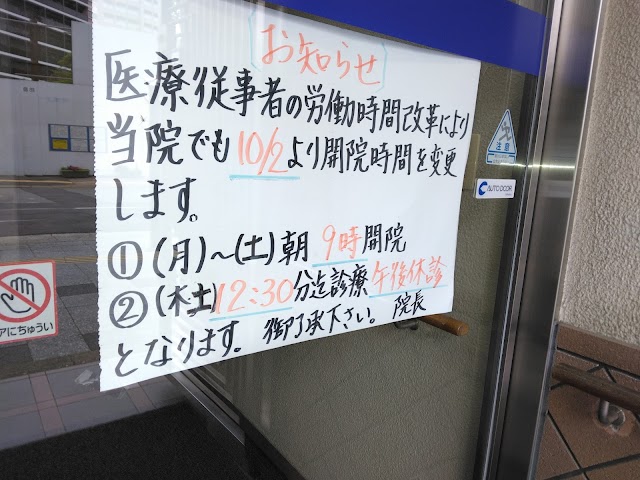 お知らせ
医療従事者の労働時間改革により
当院でも10/2より開院時間を変更
します。
①(月)～(土)朝 9時開院
②(木土)12:30分迄診療 午後休診
となります。御了承下さい。 院長
注意
AUTO DOOR
アにちゅうい